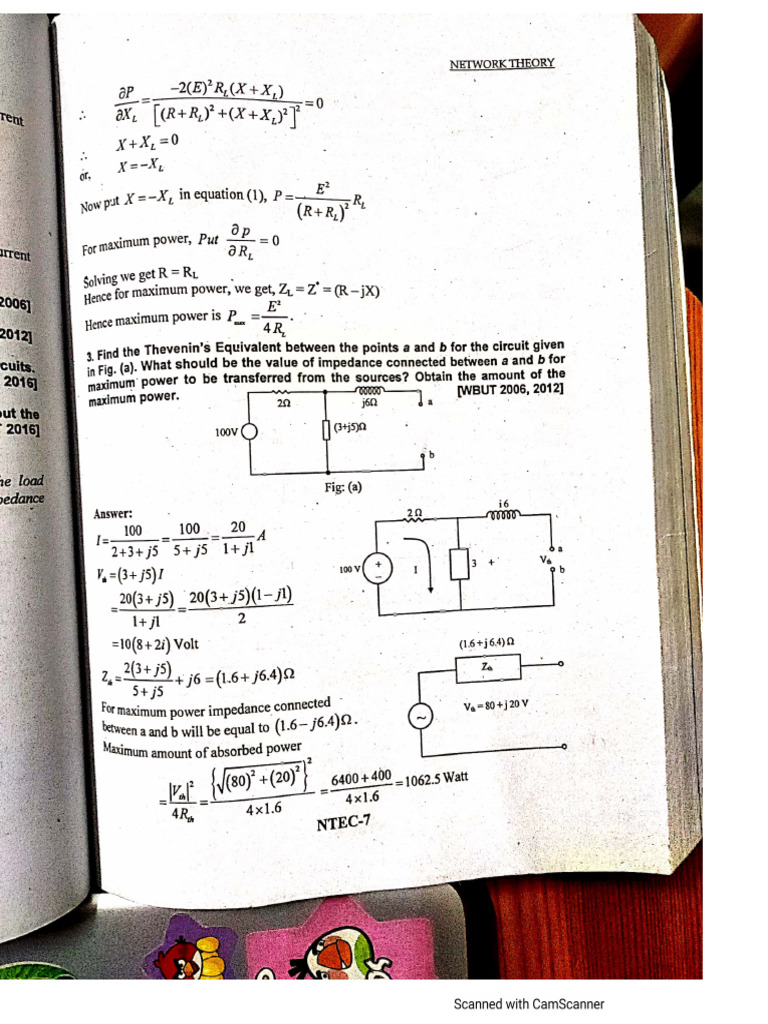 NETWORK THEORY
rent
∴ ∂P/∂X_L = −2(E)²R_L(X+X_L) / [(R+R_L)²+(X+X_L)²]² = 0
∴ X+X_L=0
or, X=−X_L
Now put X=−X_L in equation (1), P= E²/(R+R_L)² R_L
For maximum power, Put ∂p/∂R_L = 0
Solving we get R = R_L
Hence for maximum power, we get, Z_L = Z* = (R – jX)
Hence maximum power is P_max = E²/4R_L.
urrent
2006]
2012]
cuits.
2016]
out the
2016]
he load
pedance
3. Find the Thevenin's Equivalent between the points a and b for the circuit given
in Fig. (a). What should be the value of impedance connected between a and b for
maximum power to be transferred from the sources? Obtain the amount of the
maximum power. [WBUT 2006, 2012]
2Ω
j6Ω
a
100V
(3+j5)Ω
b
Fig: (a)
Answer:
I= 100/(2+3+j5) = 100/(5+j5) = 20/(1+j1) A
V_th=(3+j5)I
= 20(3+j5)/(1+j1) = 20(3+j5)(1−j1)/2
=10(8+2i) Volt
Z_th = 2(3+j5)/(5+j5) + j6 = (1.6+j6.4)Ω
For maximum power impedance connected
between a and b will be equal to (1.6−j6.4)Ω.
Maximum amount of absorbed power
= |V_th|²/4R_th = {√(80)²+(20)²}²/4×1.6 = 6400+400/4×1.6 = 1062.5 Watt
2Ω
i6
100 V
+
−
I
3 +
V_th
a
b
(1.6+j6.4)Ω
Z_th
V_th = 80+j 20 V
~
NTEC-7
Scanned with CamScanner